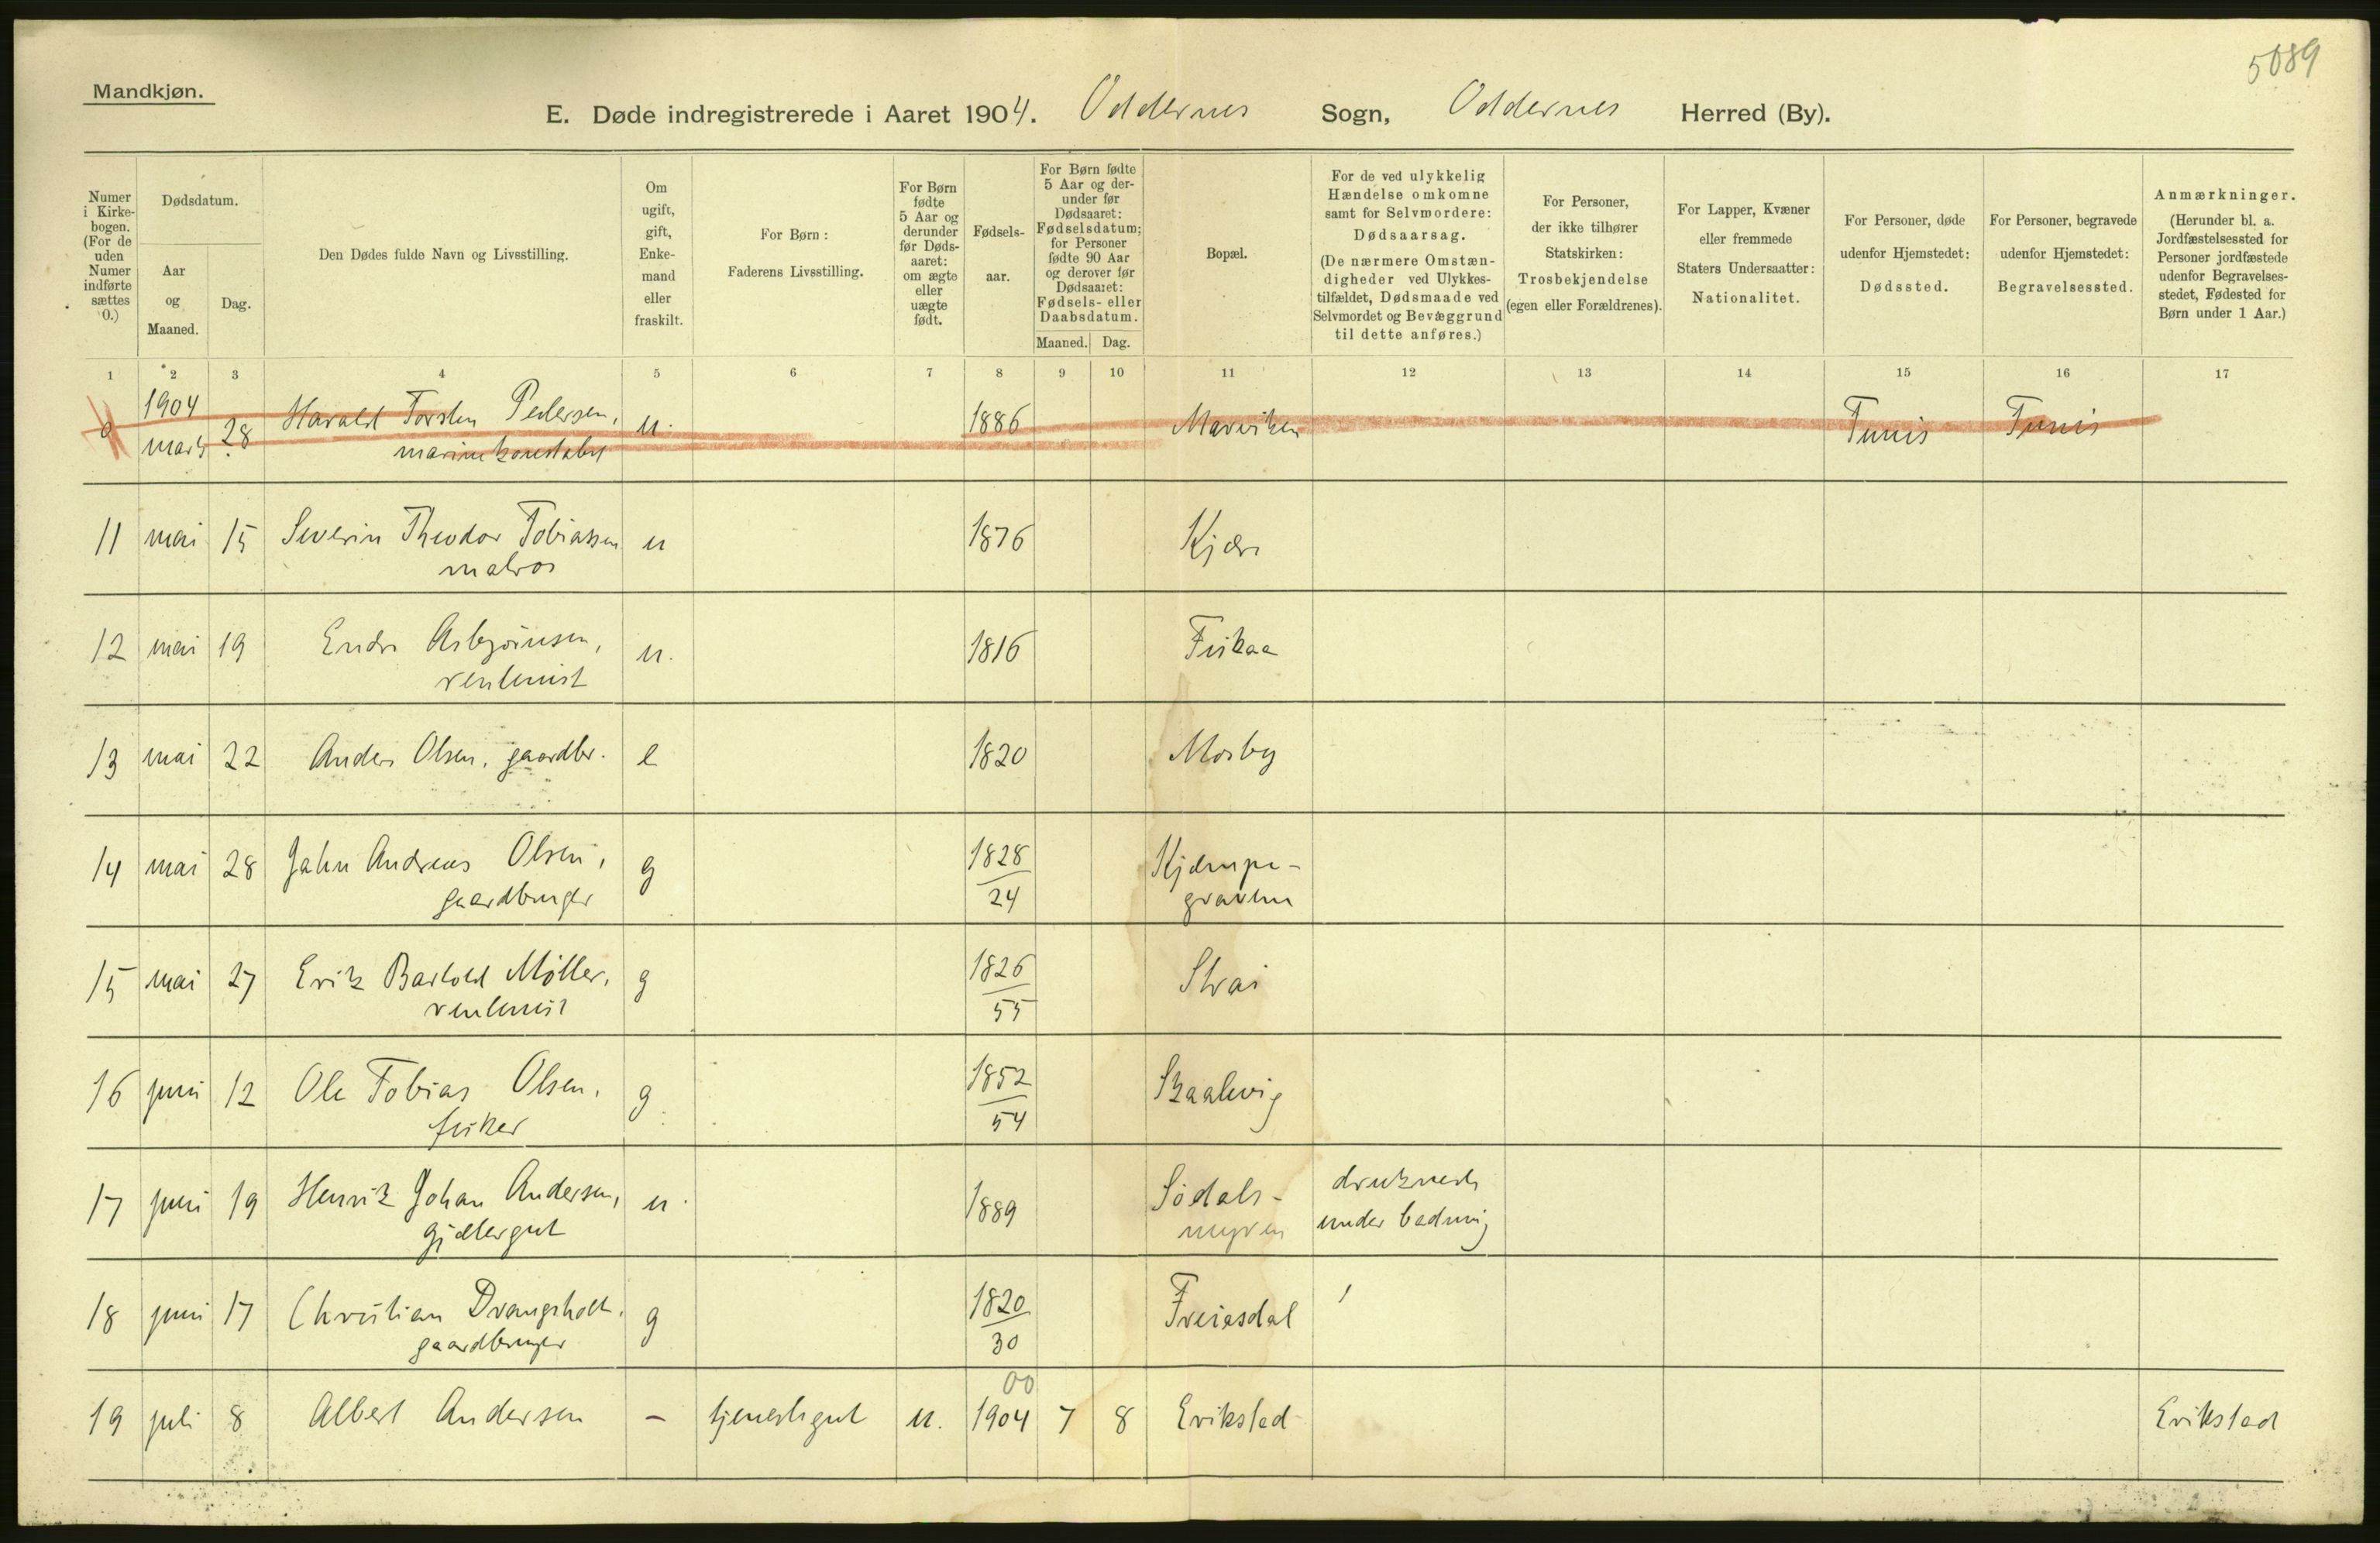 5089
Mandkjøn.
E. Døde indregistrerede i Aaret 1904. Oddernes Sogn, Oddernes Herred (By).
Numer i Kirkebogen. (For de uden Numer indførte sættes 0.)
Dødsdatum.
Aar og Maaned.
Dag.
Den Dødes fulde Navn og Livsstilling.
Om ugift, gift, Enkemand eller fraskilt.
For Børn: Faderens Livsstilling.
For Børn fødte 5 Aar og derunder før Dødsaaret: om ægte eller uægte født.
Fødselsaar.
For Børn fødte 5 Aar og derunder før Dødsaaret: Fødselsdatum; for Personer fødte 90 Aar og derover før Dødsaaret: Fødsels- eller Daabsdatum.
Maaned. Dag.
Bopæl.
For de ved ulykkelig Hændelse omkomne samt for Selvmordere: Dødsaarsag. (De nærmere Omstændigheder ved Ulykkestilfældet, Dødsmaade ved Selvmordet og Bevæggrund til dette anføres.)
For Personer, der ikke tilhører Statskirken: Trosbekjendelse (egen eller Forældrenes).
For Lapper, Kvæner eller fremmede Staters Undersaatter: Nationalitet.
For Personer, døde udenfor Hjemstedet: Dødssted.
For Personer, begravede udenfor Hjemstedet: Begravelsessted.
Anmærkninger. (Herunder bl. a. Jordfæstelsessted for Personer jordfæstede udenfor Begravelsesstedet, Fødested for Børn under 1 Aar.)
1 2 3 4 5 6 7 8 9 10 11 12 13 14 15 16 17
0 1904 mars 28 Harald Torsten Pedersen, u. 1886 Marviken Tunis Tunis
marinekonstabel
11 mai 15 Severin Theodor Tobiassen u 1876 Kjære
matros
12 mai 19 Endre Asbjörnsen, u. 1816 Fiskaa
rentenist
13 mai 22 Anders Olsen, gaardbr. e 1820 Mosby
14 mai 28 Jahn Andreas Olsen, g 1828 Kjæmpe-
gaardbruger 24 graven
15 mai 27 Erik Bartold Möller, g 1826 Strai
rentenist 55
16 juni 12 Ole Tobias Olsen, g. 1852 Skaalevig
fisker 54
17 juni 19 Henrik Johan Andersen, u. 1889 Södals- druknede
gjætergut myren under badning
18 juni 17 Christian Drangsholt, g 1820 Freiasdal
gaardbruger 30
00
19 juli 8 Albert Andersen – tjenestegut u. 1904 7 8 Erikstad Erikstad